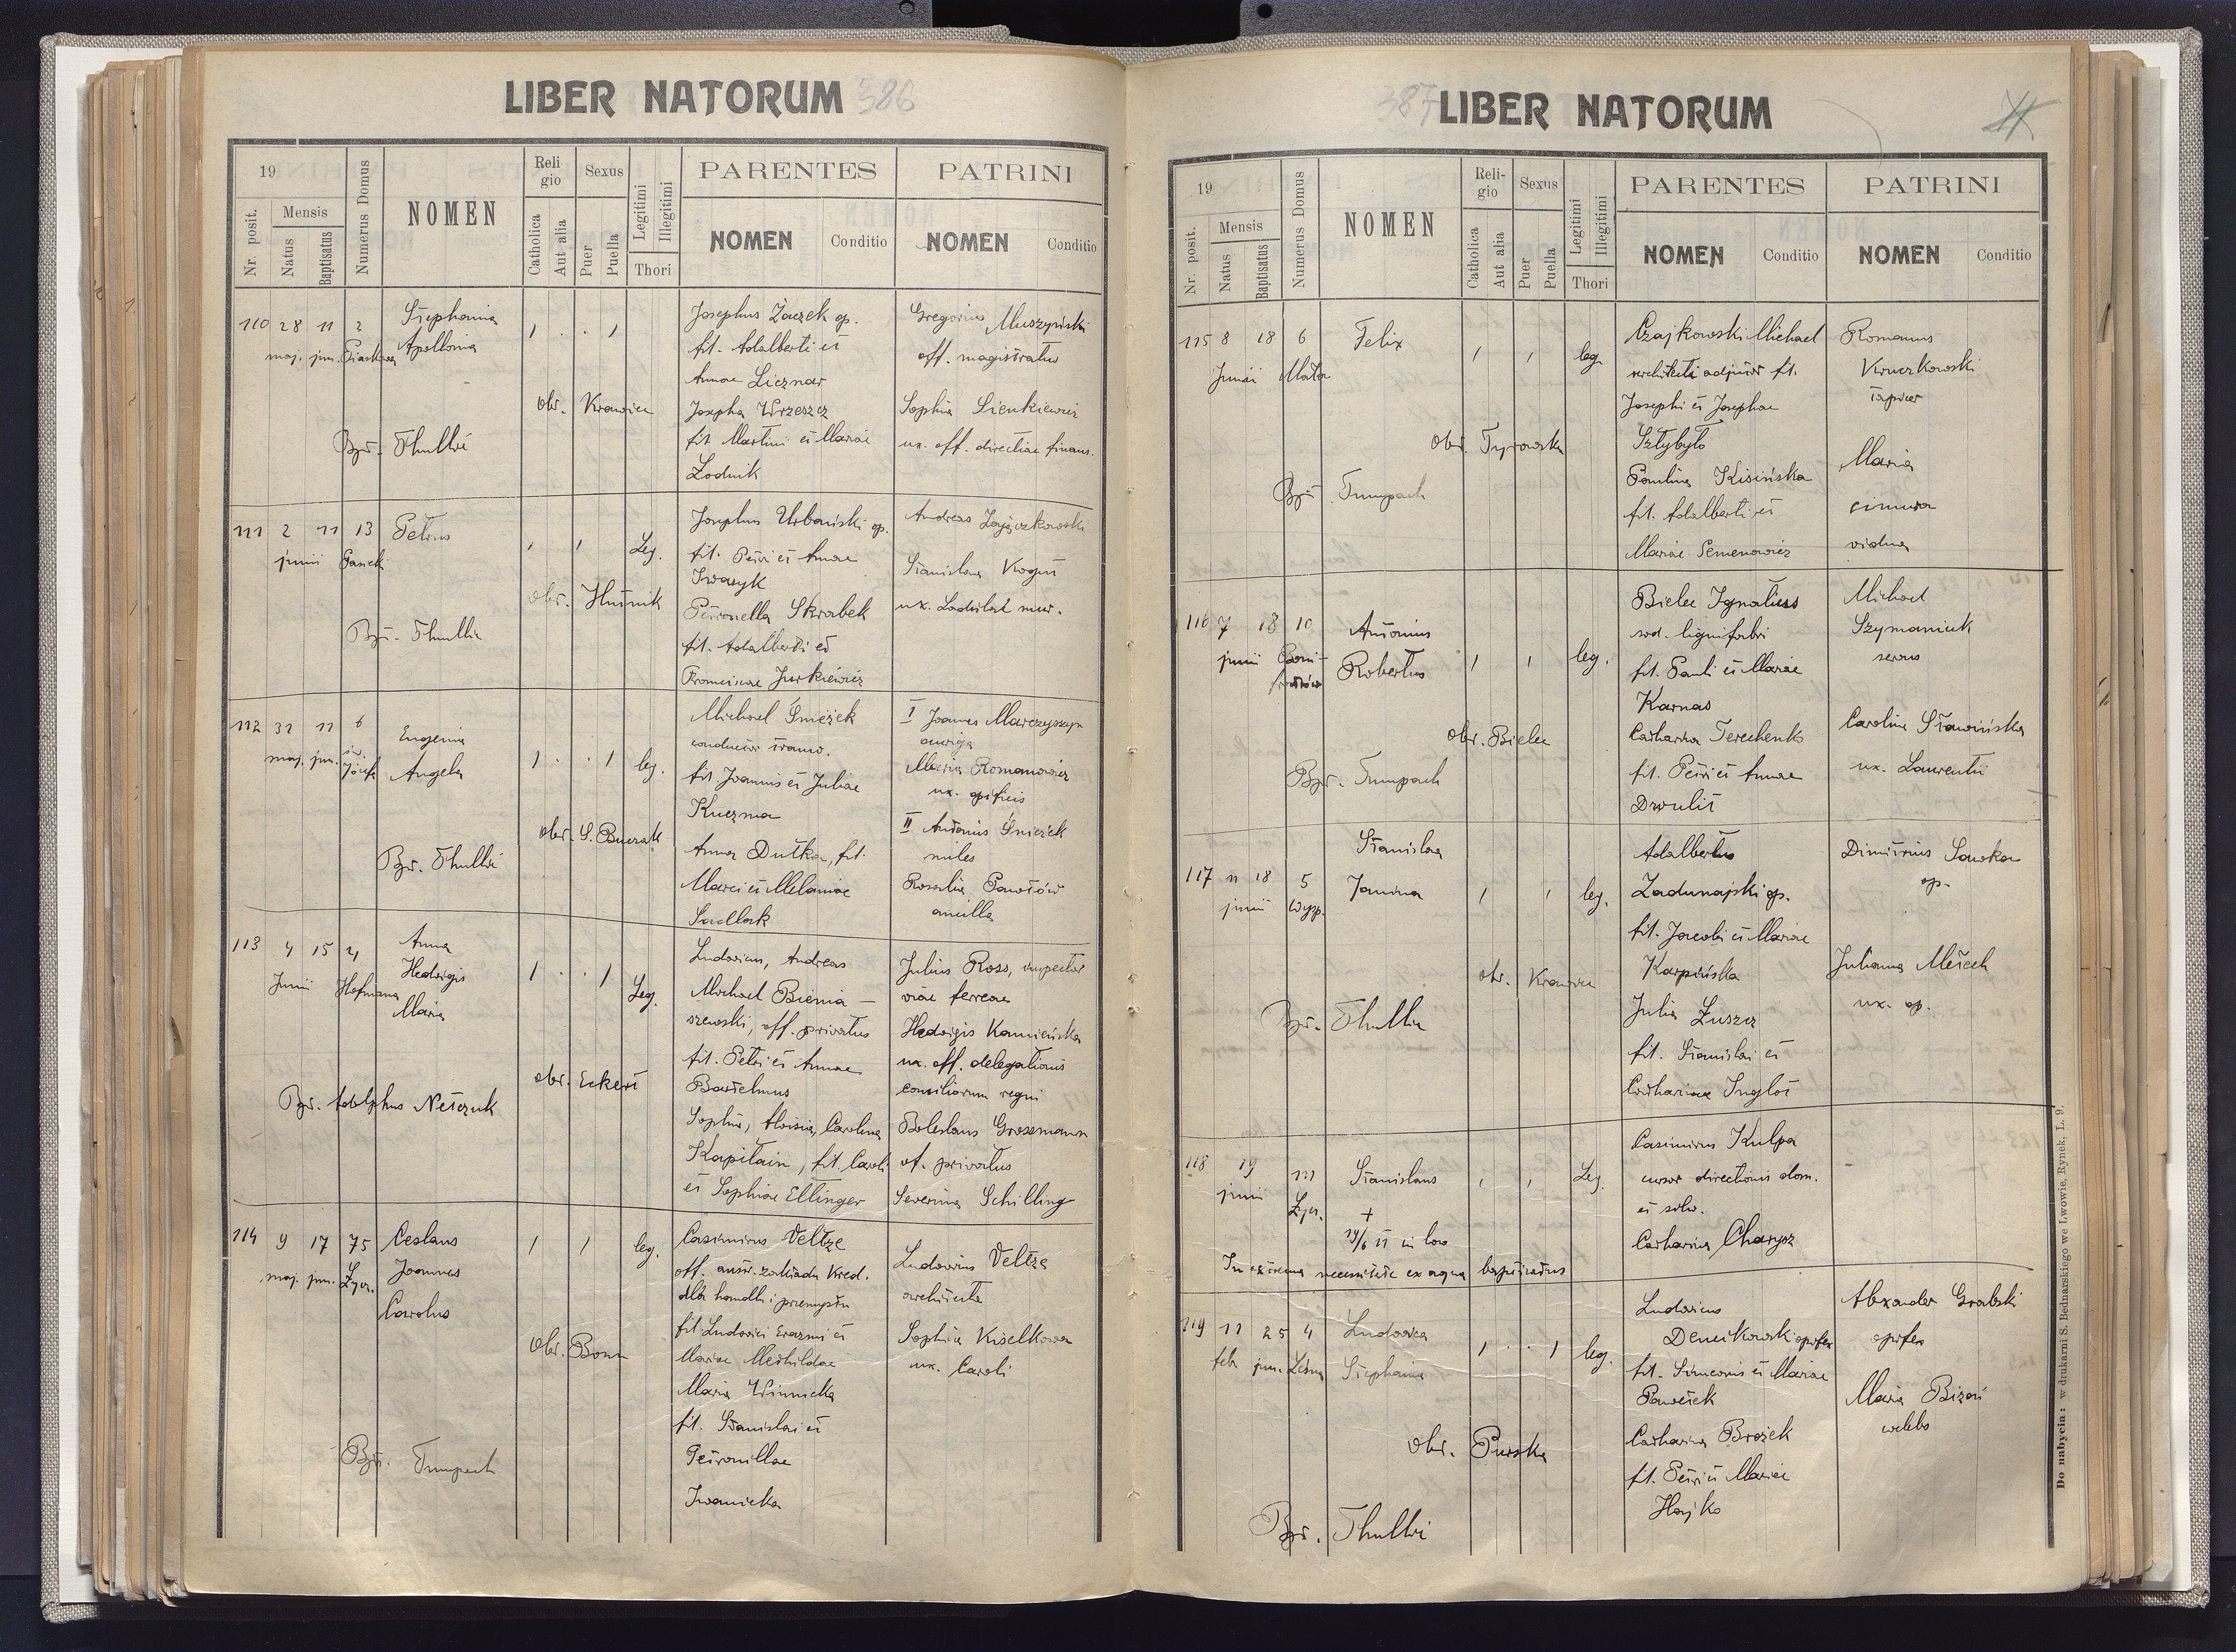 LIBER NATORUM 386
19
Nr. posit.
Mensis
Natus
Baptisatus
Numerus Domus
NOMEN
Religio
Catholica
Aut alia
Sexus
Puer
Puella
Legitimi
Illegitimi
Thori
PARENTES
NOMEN
Conditio
PATRINI
NOMEN
Conditio
110 28 11 2
maj. jun. Piaskowa
Stephania
Apollonia
1 . . 1
obs. Krawiec
Bpt. Thullie
Josephus Żaczek op.
fil. Adalberti et
Annae Licznar
Josepha Wrzeszcz
fil. Martini et Mariae
Zodnik
Gregorius Muszyński
off. magistratus
Sophia Sienkiewicz
ux. off. directiae finans.
111 2 11 13
junii Janek
Petrus
1 1 Leg.
obs. Hutnik
Bpt. Thullie
Josephus Urbański op.
fil. Petri et Annae
Iwasyk
Petronella Skrabek
fil. Adalberti et
Franciscae Jurkiewicz
Andreas Zajączkowski
Stanislava Kogut
ux. Ladislai mur.
112 31 11 6
maj. jun. św. Józef
Eugenia
Angela
1 . . 1 leg.
obs. S. Buczak
Bpt. Thullie
Michael Śnieżek
conductor tramv.
fil. Joannis et Juliae
Kuczma
Anna Dutka, fil.
Marci et Melaniae
Sadlak
I Joannes Marczyszyn
auriga
Maria Romanowicz
ux. opificis
II Antonius Śnieżek
miles
Rosalia Pawłów
ancilla
113 4 15 21
Junii Hofmana
Anna
Hedvigis
Maria
1 . . 1 Leg.
obs. Eckert
Bpt. Adolphus Netczuk
Ludovicus, Andreas
Michael Bienia-
szewski, off. privatus
fil. Petri et Annae
Bartelmus
Sophia, Aloisia, Carolina
Kapitain, fil. Caroli
et Sophiae Ettinger
Julius Ross, inspector
viae ferreae
Hedvigis Kamieńska
ux. off. delegationis
consiliorum regni
Boleslaus Grossmann
of. privatus
Severina Schilling
114 9 17 75
maj. jun. Łycz.
Ceslaus
Joannes
Carolus
1 1 leg.
obs. Bonn
Bpt. Trumpach
Casimirus Veltze
off. austr. zakładu kred.
dla handlu i przemysłu
fil. Ludovici Erazmi et
Mariae Methildae
Maria Winnicka
fil. Stanislai et
Petronillae
Iwanicka
Ludovicus Veltze
architecta
Sophia Kiselkowa
ux. Caroli
387 LIBER NATORUM
19
Nr. posit.
Mensis
Natus
Baptisatus
Numerus Domus
NOMEN
Religio
Catholica
Aut alia
Sexus
Puer
Puella
Legitimi
Illegitimi
Thori
PARENTES
NOMEN
Conditio
PATRINI
NOMEN
Conditio
115 8 18 6
Junii Mała
Felix
1 1 leg.
obs. Tyrowska
Bpt. Trumpach
Czajkowski Michael
architecti adjutor fil.
Josephi et Josephae
Sztybyło
Paulina Kisińska
fil. Adalberti et
Mariae Semenowicz
Romanus
Kruczkowski
tapicer
Maria
vidua
116 7 18 10
junii Boni-
fratrów
Antonius
Robertus
1 1 leg.
obs. Bielec
Bpt. Trumpach
Bielec Ignatius
sod. lignifabri
fil. Pauli et Mariae
Karnas
Catharina Terechenko
fil. Petri et Annae
Drwulit
Michael
Szymaniuk
servus
Carolina Sławińska
ux. Laurentii
117 11 18 5
junii Wyp.
Stanislava
Janina
1 1 leg.
obs. Krawiec
Bpt. Thullie
Adalbertus
Zadunajski op.
fil. Jacobi et Mariae
Karpińska
Julia Łuszcz
fil. Stanislai et
Catharinae Inglot
Dimitrius Sawka
op.
Julianna Mełech
ux. op.
118 19 111
junii Łycz.
Stanislaus
+
19/6 11 in loco
1 1 Leg.
In extrema necessitate ex aqua baptisatus
Casimirus Kulpa
cursor directionis dom.
et silv.
Catharina Charysz
119 11 25 4
feb. jun. Leśna
Ludovica
Stephania
1 . . 1 leg.
obs. Purska
Bpt. Thullie
Ludovicus
Demikowski opifex
fil. Simeonis et Mariae
Pawełek
Catharina Brożek
fil. Petri et Mariae
Hajko
Alexander Grabski
opifex
Maria Bizoń
coelebs
Do nabycia: w drukarni S. Bednarskiego we Lwowie, Rynek, L. 9.